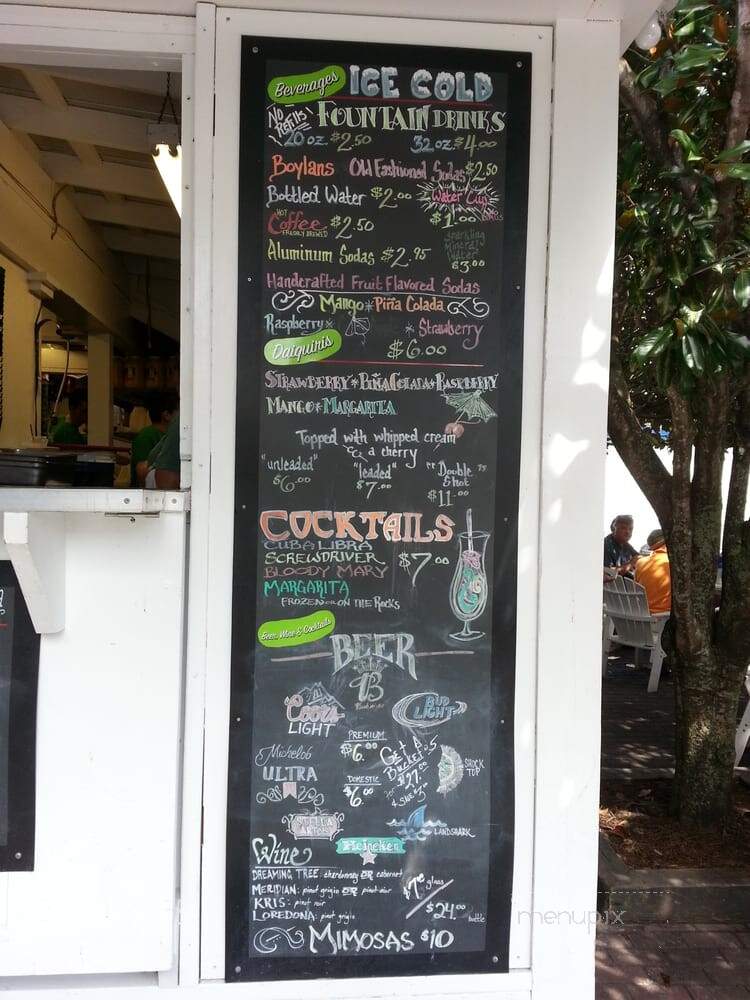 Beverages ICE COLD
NO REFILLS FOUNTAIN DRINKS
20 oz. $2.50 32 oz. $4.00
Boylans Old Fashioned Sodas $2.50
Bottled Water $2.00 Water Cup
HOT Coffee $2.50 $1.00
FRESHLY BREWED
Aluminum Sodas $2.95 Sparkling Mineral Water $3.00
Handcrafted Fruit Flavored Sodas
Mango * Piña Colada
Raspberry * * Strawberry
$6.00
Daiquiris
STRAWBERRY * PIÑA COLADA * RASPBERRY
MANGO * MARGARITA
Topped with whipped cream
& a cherry
"unleaded" "leaded" "Double Shot"
$6.00 $7.00 $11.00
COCKTAILS
CUBA LIBRA
SCREWDRIVER $7.00
BLOODY MARY
MARGARITA
FROZEN OR ON THE ROCKS
Beer, Wine & Cocktails
BEER
B
Coors LIGHT BUD LIGHT
PREMIUM
$6.00
Get A Bucket of 5 for $27.00
& Save $3.00
Michelob ULTRA
DOMESTIC
$6.00
SHOCK TOP
STELLA ARTOIS LANDSHARK
Heineken
Wine
DREAMING TREE: chardonnay OR cabernet
MERIDIAN: pinot grigio OR pinot noir $7.00 glass
KRIS: pinot noir
LOREDONA: pinot grigio $24.00 bottle
MIMOSAS $10
menupix